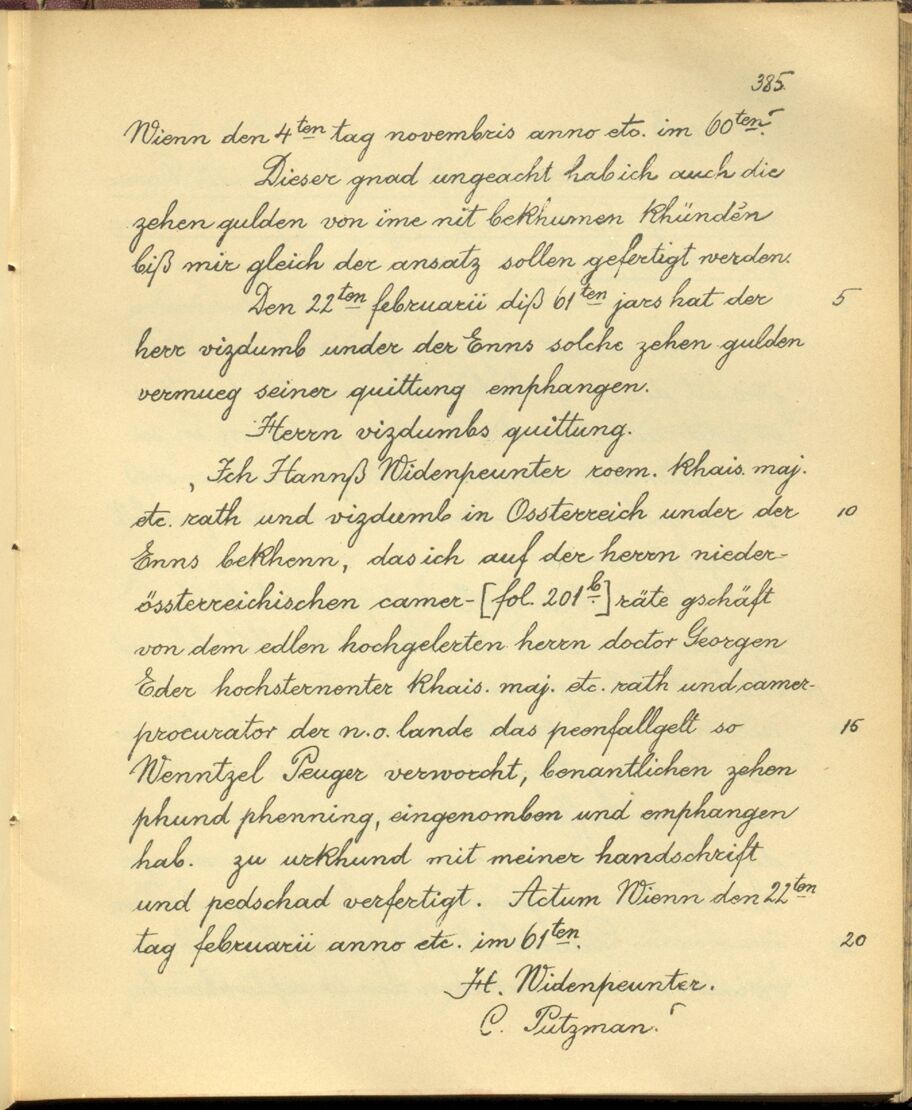 385.
Wienn den 4ten tag novembris anno etc. im 60ten.
Dieser gnad ungeacht hab ich auch die
zehen gulden von ime nit bekhumen khünden
biß mir gleich der ansatz sollen gefertigt werden.
Den 22ten februarii diß 61ten jars hat der 5
herr vizdumb under der Enns solche zehen gulden
vermueg seiner quittung emphangen.
Herrn vizdumbs quittung.
Ich Hannß Widenpeunter roem. khais. maj.
etc. rath und vizdumb in Ossterreich under der 10
Enns bekhenn, das ich auf der herrn nieder-
össterreichischen camer-[fol. 201b.] räte gschäft
von dem edlen hochgelerten herrn doctor Georgen
Eder hochsternenter khais. maj. etc. rath und camer-
procurator der n.o. lande das peenfallgelt so 15
Wenntzel Peuger verworcht, benantlichen zehen
phund phenning, eingenomben und emphangen
hab. zu urkhund mit meiner handschrift
und pedschad verfertigt. Actum Wienn den 22ten
tag februarii anno etc. im 61ten. 20
H. Widenpeunter.
C. Putzman.